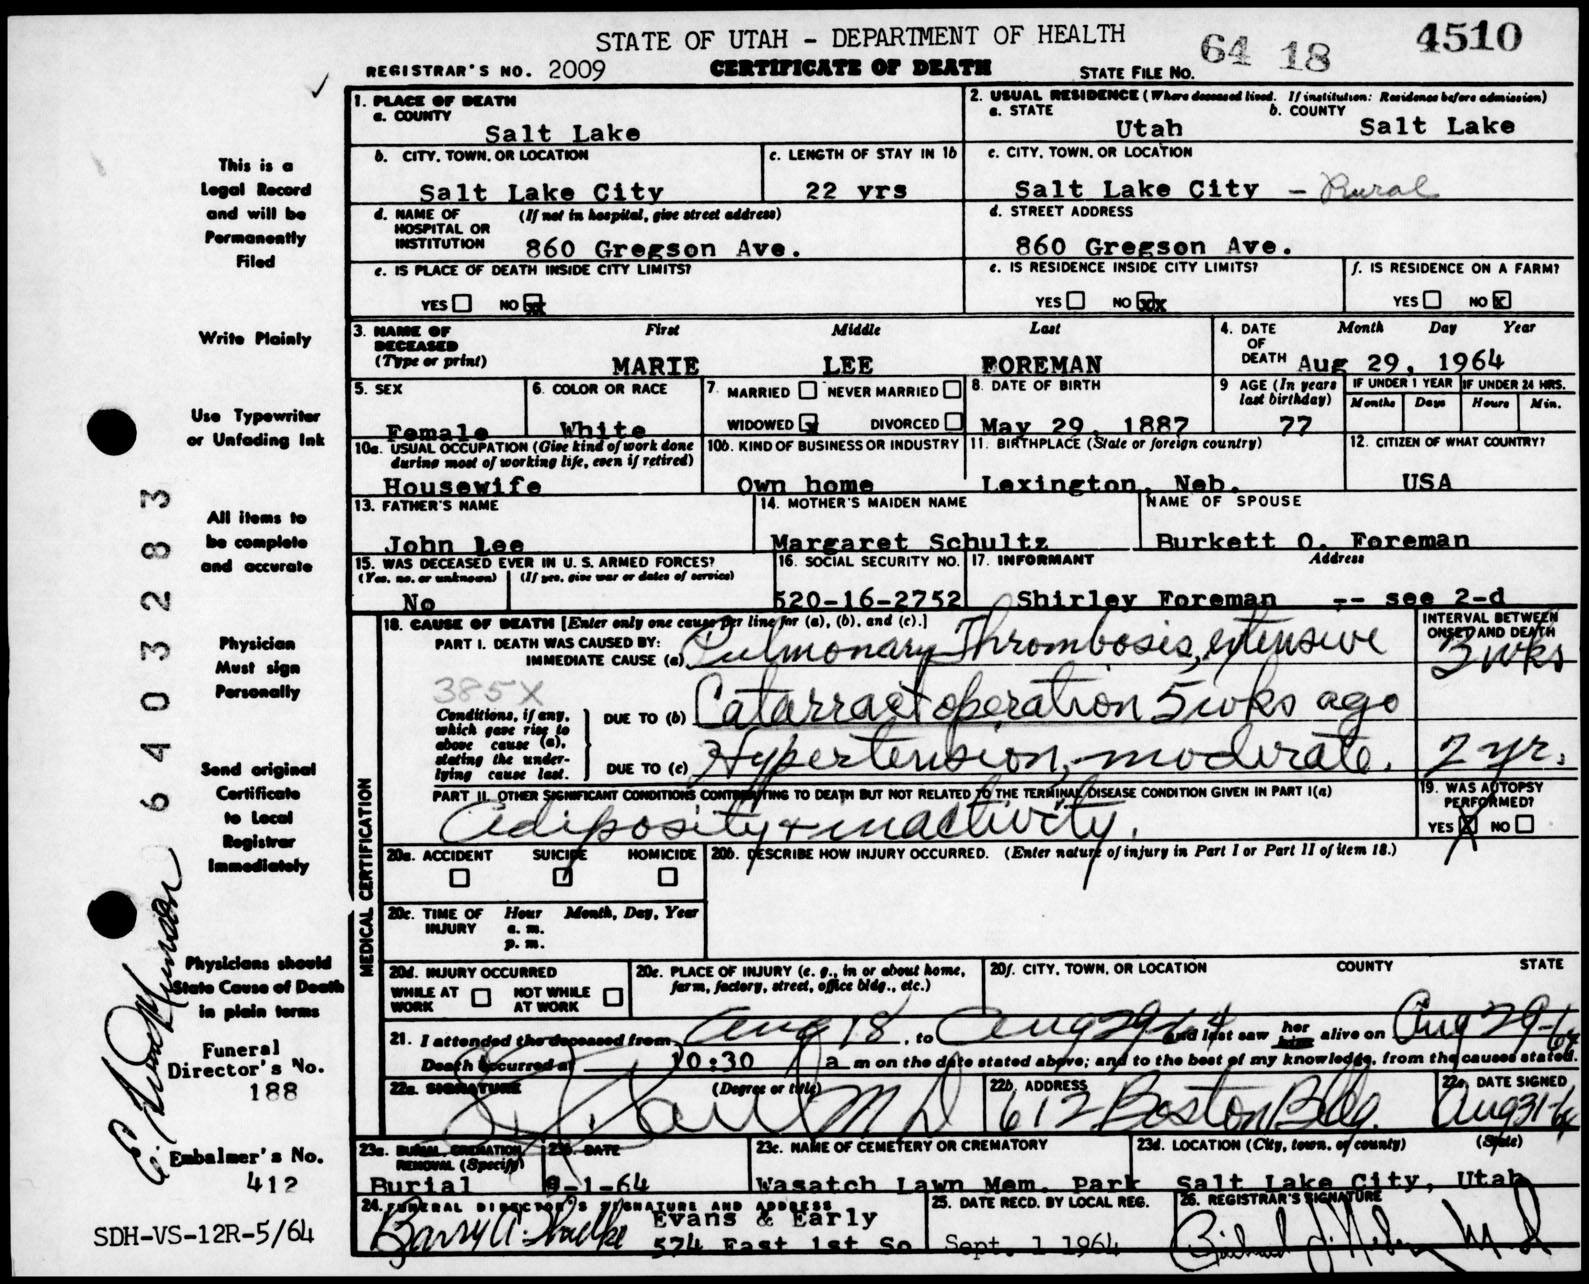 STATE OF UTAH - DEPARTMENT OF HEALTH
64 18 4510
REGISTRAR'S NO. 2009 CERTIFICATE OF DEATH STATE FILE NO.
1. PLACE OF DEATH
a. COUNTY
Salt Lake
2. USUAL RESIDENCE (Where deceased lived. If institution: Residence before admission)
a. STATE b. COUNTY
Utah Salt Lake
b. CITY, TOWN, OR LOCATION
Salt Lake City
c. LENGTH OF STAY IN 1b
22 yrs
c. CITY, TOWN, OR LOCATION
Salt Lake City - Rural
d. NAME OF HOSPITAL OR INSTITUTION (If not in hospital, give street address)
860 Gregson Ave.
d. STREET ADDRESS
860 Gregson Ave.
e. IS PLACE OF DEATH INSIDE CITY LIMITS?
YES NO xx
e. IS RESIDENCE INSIDE CITY LIMITS?
YES NO xx
f. IS RESIDENCE ON A FARM?
YES NO x
3. NAME OF DECEASED (Type or print)
First Middle Last
MARIE LEE FOREMAN
4. DATE OF DEATH Month Day Year
Aug 29, 1964
5. SEX
Female
6. COLOR OR RACE
White
7. MARRIED NEVER MARRIED
WIDOWED x DIVORCED
8. DATE OF BIRTH
May 29, 1887
9 AGE (In years last birthday)
77
IF UNDER 1 YEAR IF UNDER 24 HRS.
Months Days Hours Min.
10a. USUAL OCCUPATION (Give kind of work done during most of working life, even if retired)
Housewife
10b. KIND OF BUSINESS OR INDUSTRY
Own home
11. BIRTHPLACE (State or foreign country)
Lexington, Neb.
12. CITIZEN OF WHAT COUNTRY?
USA
13. FATHER'S NAME
John Lee
14. MOTHER'S MAIDEN NAME
Margaret Schultz
NAME OF SPOUSE
Burkett O. Foreman
15. WAS DECEASED EVER IN U. S. ARMED FORCES?
(Yes, no, or unknown) (If yes, give war or dates of service)
No
16. SOCIAL SECURITY NO.
520-16-2752
17. INFORMANT Address
Shirley Foreman -- see 2-d
MEDICAL CERTIFICATION
18. CAUSE OF DEATH [Enter only one cause per line for (a), (b), and (c).]
INTERVAL BETWEEN ONSET AND DEATH
PART I. DEATH WAS CAUSED BY:
IMMEDIATE CAUSE (a) Pulmonary Thrombosis, extensive 3 wks
385X
Conditions, if any, which gave rise to above cause (a), stating the underlying cause last.
DUE TO (b) Catarract operation 5 wks ago
DUE TO (c) Hypertension, moderate. 2 yr.
PART II. OTHER SIGNIFICANT CONDITIONS CONTRIBUTING TO DEATH BUT NOT RELATED TO THE TERMINAL DISEASE CONDITION GIVEN IN PART I(a)
Adiposity + inactivity.
19. WAS AUTOPSY PERFORMED?
YES X NO
20a. ACCIDENT SUICIDE HOMICIDE
20b. DESCRIBE HOW INJURY OCCURRED. (Enter nature of injury in Part I or Part II of item 18.)
20c. TIME OF INJURY Hour Month, Day, Year
a. m.
p. m.
20d. INJURY OCCURRED
WHILE AT WORK NOT WHILE AT WORK
20e. PLACE OF INJURY (e. g., in or about home, farm, factory, street, office bldg., etc.)
20f. CITY, TOWN, OR LOCATION COUNTY STATE
21. I attended the deceased from Aug 18, to Aug 29 64 and last saw her him alive on Aug 29-64
Death occurred at 10:30 a m on the date stated above; and to the best of my knowledge, from the causes stated.
22a. SIGNATURE (Degree or title)
M D
22b. ADDRESS
612 Boston Bldg.
22c. DATE SIGNED
Aug 31-64
23a. BURIAL, CREMATION REMOVAL (Specify)
Burial
23b. DATE
9-1-64
23c. NAME OF CEMETERY OR CREMATORY
Wasatch Lawn Mem. Park
23d. LOCATION (City, town, or county) (State)
Salt Lake City, Utah
24. FUNERAL DIRECTOR'S SIGNATURE AND ADDRESS
Barry A.
Evans & Early
574 East 1st So
25. DATE RECD. BY LOCAL REG.
Sept. 1 1964
26. REGISTRAR'S SIGNATURE
M D
This is a
Legal Record
and will be
Permanently
Filed
Write Plainly
Use Typewriter
or Unfading Ink
All items to
be complete
and accurate
Physician
Must sign
Personally
Send original
Certificate
to Local
Registrar
Immediately
Physicians should
State Cause of Death
in plain terms
Funeral
Director's No.
188
Embalmer's No.
412
SDH-VS-12R-5/64
64032283